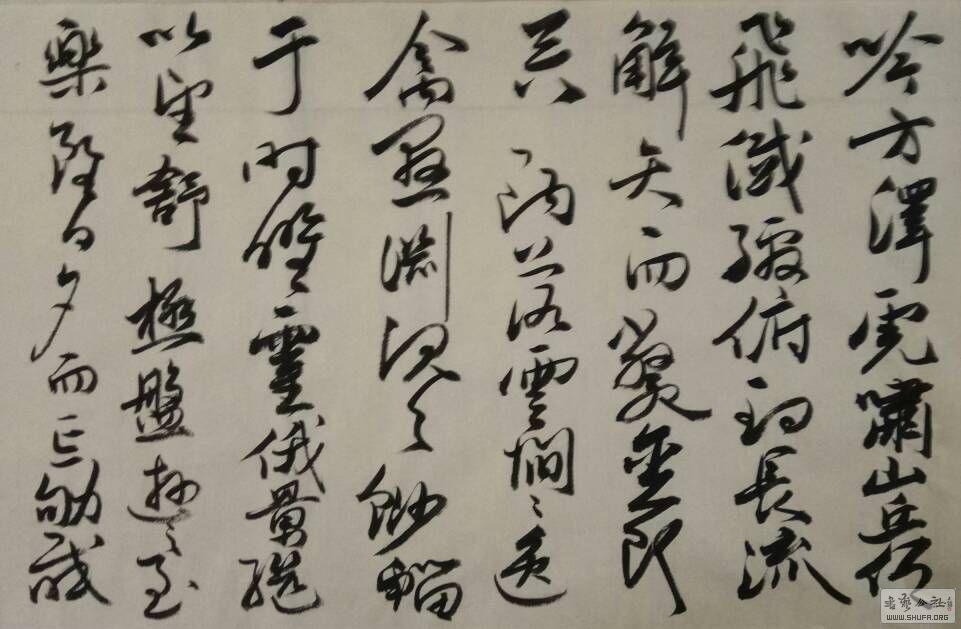 吟方澤虎嘯山丘仰
飛纖繳俯釣長流
觸矢而斃貪餌
吞鉤落雲間之逸
禽懸淵沉之魦鰡
于時曜靈俄景繼
以望舒極盤遊之至
樂雖日夕而忘劬感
書藝公社
WWW.SHUFA.ORG